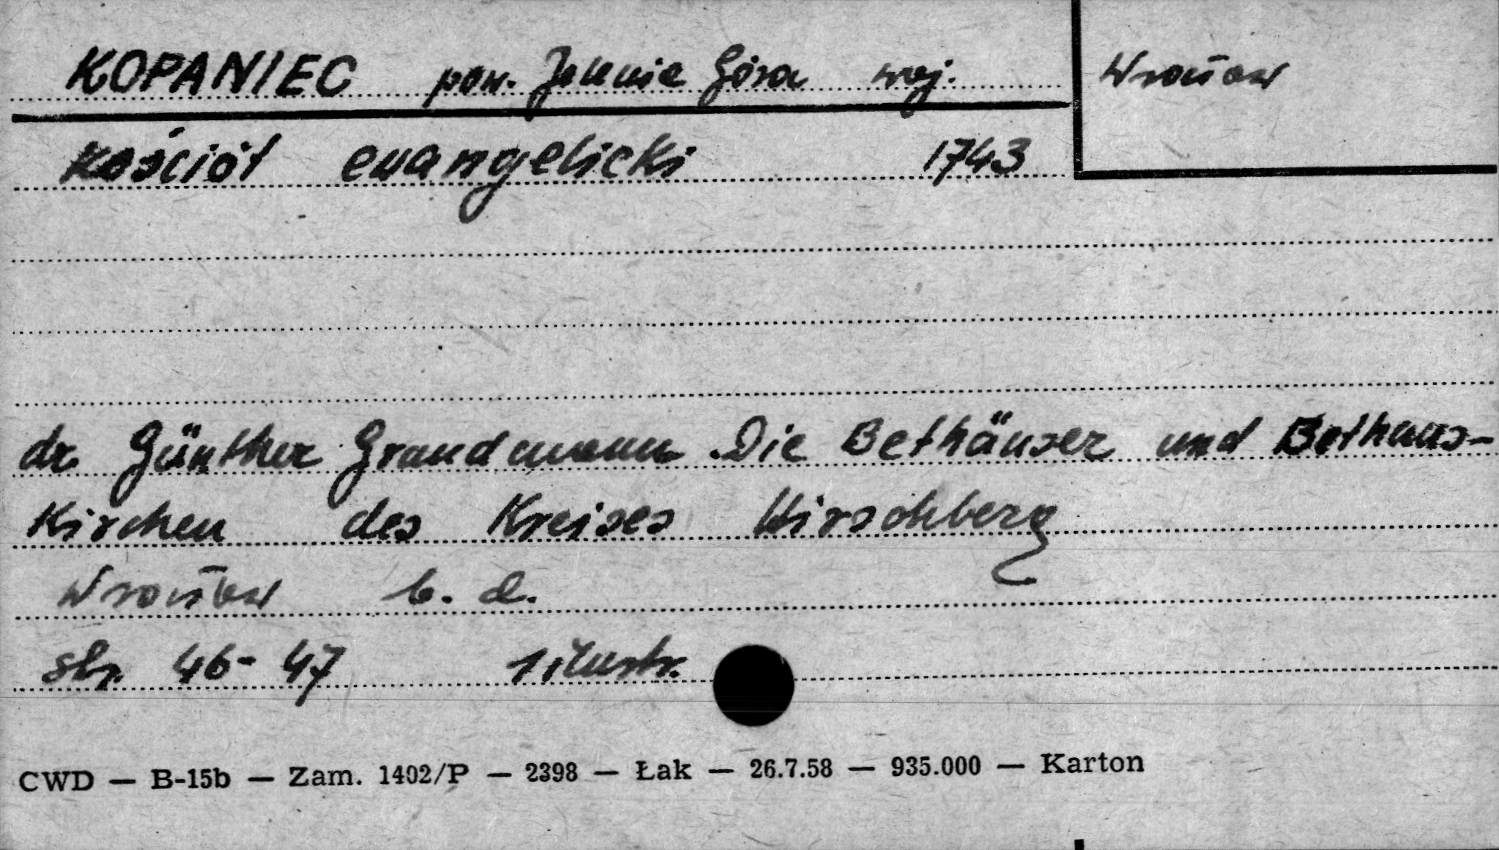 KOPANIEC pow. Jelenia Góra woj. Wrocław
Kościół ewangelicki 1743
dr. Günther Grundmann Die Bethäuser und Bethaus-
Kirchen des Kreises Hirschberg
Wrocław b. d.
str. 46-47 1 ilustr.
CWD — B-15b — Zam. 1402/P — 2398 — Łak — 26.7.58 — 935.000 — Karton